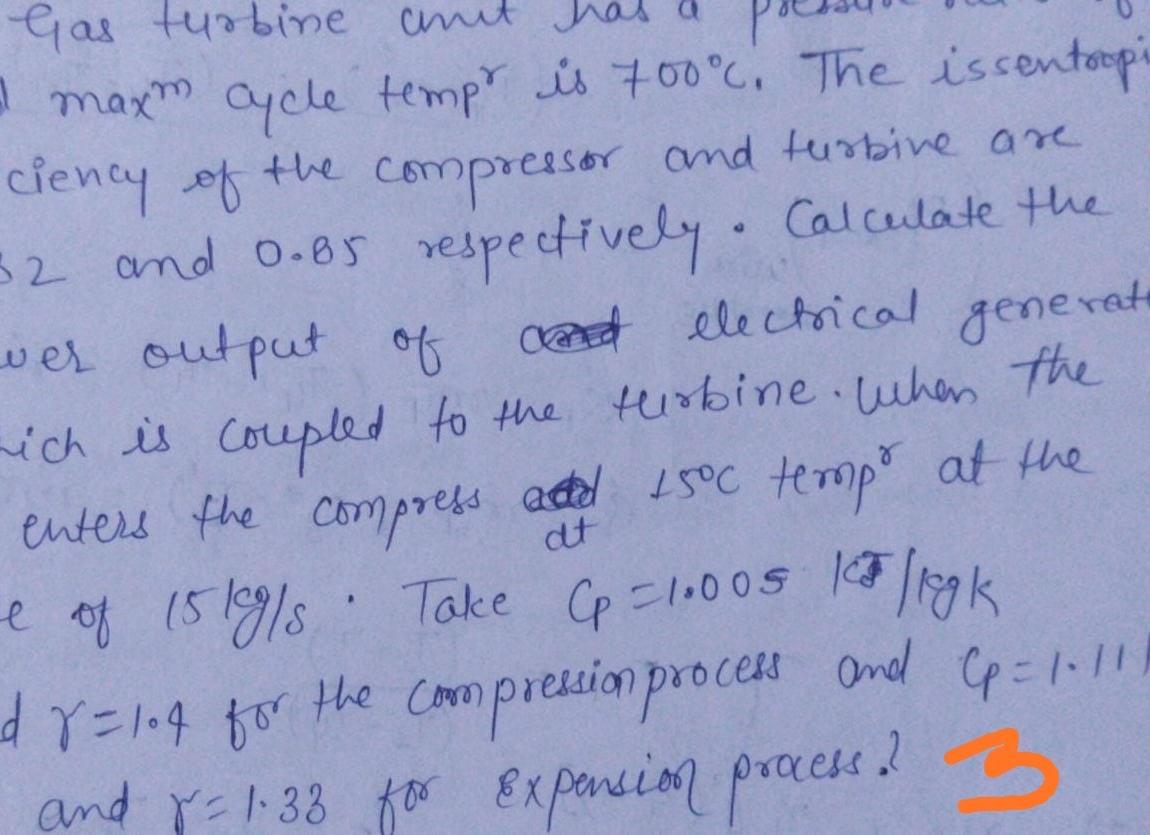 Gas turbine unit has a pressure
maxᵐ cycle tempʳ is 700°C. The issentropi
ciency of the compressor and turbine are
32 and 0.85 respectively. Calculate the
wer output of electrical generat
hich is coupled to the turbine. When the
enters the compress 15°C tempʳ at the
at
e of 15 kg/s. Take Cp = 1.005 kJ/kgk
d γ = 1.4 for the compression process and Cp = 1.11
and γ = 1.33 for expension process?
3